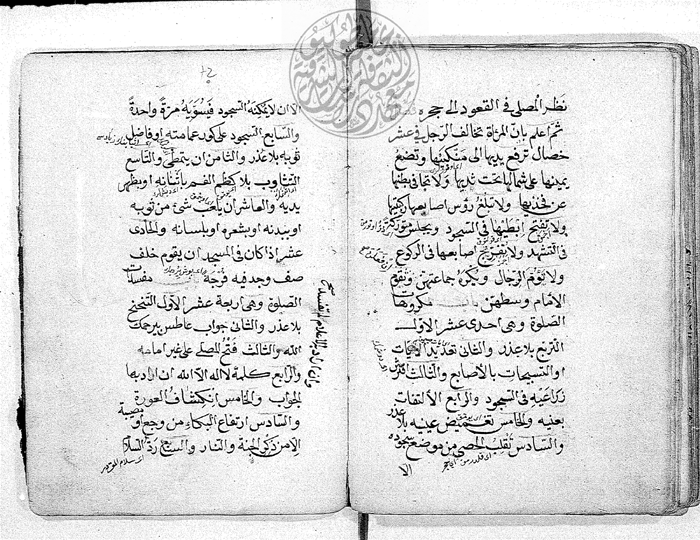 نظر المصلى فى القعود الى حجره
ثم اعلم بان المرأة تخالف الرجل فى عشر
خصال ترفع يديها الى منكبيها وتضع
يمينها على شمالها تحت ثدييها ولا تجافى بطنها
عن فخذيها ولا تبلغ رؤس اصابعها ركبتيها
ولا تفتح ابطيها فى السجود وتجلس متوركة
فى التشهد ولا تفرج اصابعها فى الركوع
ولا تؤم الرجال ويكره جماعتهن وتقوم
الامام وسطهن مكروهات
الصلوة وهى احدى عشر الاول
التربع بلا عذر والثانى تعديد الآيات
او التسبيحات بالاصابع والثالث افتراش
ذراعيه فى السجود والرابع الالتفات
بعنيه والخامس تغميض عينيه بلا عذر
والسادس تقليب الحصى من موضع سجوده
الا
الا ان لا يمكنه السجود فيسويه مرة واحدة
والسابع السجود على كور عمامته او فاضل
ثوبه بلا عذر والثامن ان يتمطى والتاسع
التثاوب بلا كظم الفم باثنائه او بظهر
يديه والعاشر ان يلعب شئ من ثوبه
او ببدنه او بشعره او بلسانه والحادى
عشر اذا كان فى المسجد ان يقوم خلف
صف وجد فيه فرجة مفسدات
الصلوة وهى اربعة عشر الاول التنحنح
بلا عذر والثانى جواب عاطس بيرحمك
الله والثالث فتح المصلى على غير امامه
والرابع كلمة لا اله الا الله ان اراد بها
الجواب والخامس انكشاف العورة
والسادس ارتفاع البكاء من وجع او مصيبة
الا من ذكر الجنة والنار والسابع رد السلام